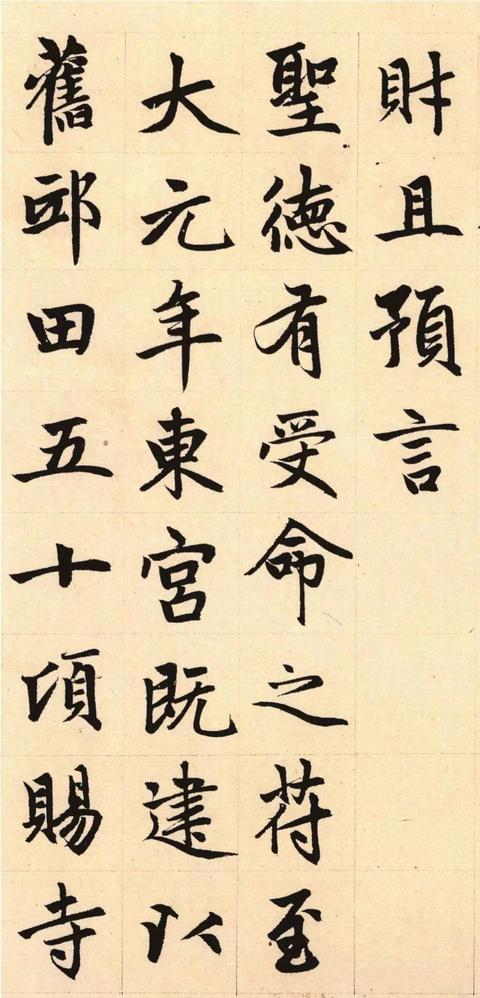 財且預言
聖德有受命之符至
大元年東宮既建以
舊邸田五十頃賜寺